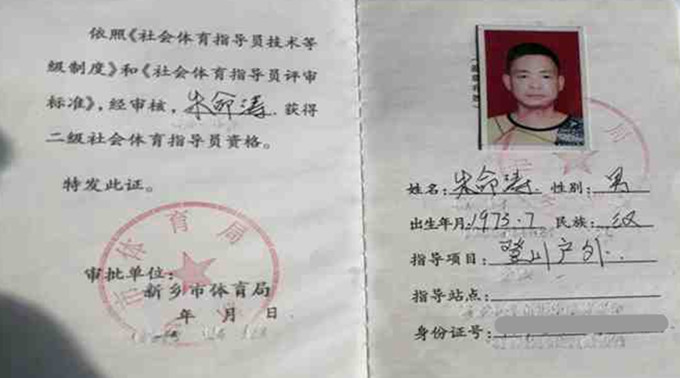 依照《社会体育指导员技术等
级制度》和《社会体育指导员评审
标准》，经审核，朱命涛 获得
二级社会体育指导员资格。
特发此证。
审批单位：
新乡市体育局
年 月 日
市体育局
姓名：朱命涛 性别：男
出生年月：1973.7 民族：汉
指导项目：登山户外
指导站点：
身份证号：